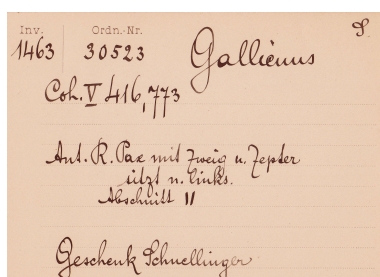 Inv. Ordn.-Nr. S.
1463 30523 Gallienus
Coh. V 416,773
Ant. R. Pax mit Zweig u. Zepter
sitzt n. links.
Abschnitt II
Geschenk Schnellinger